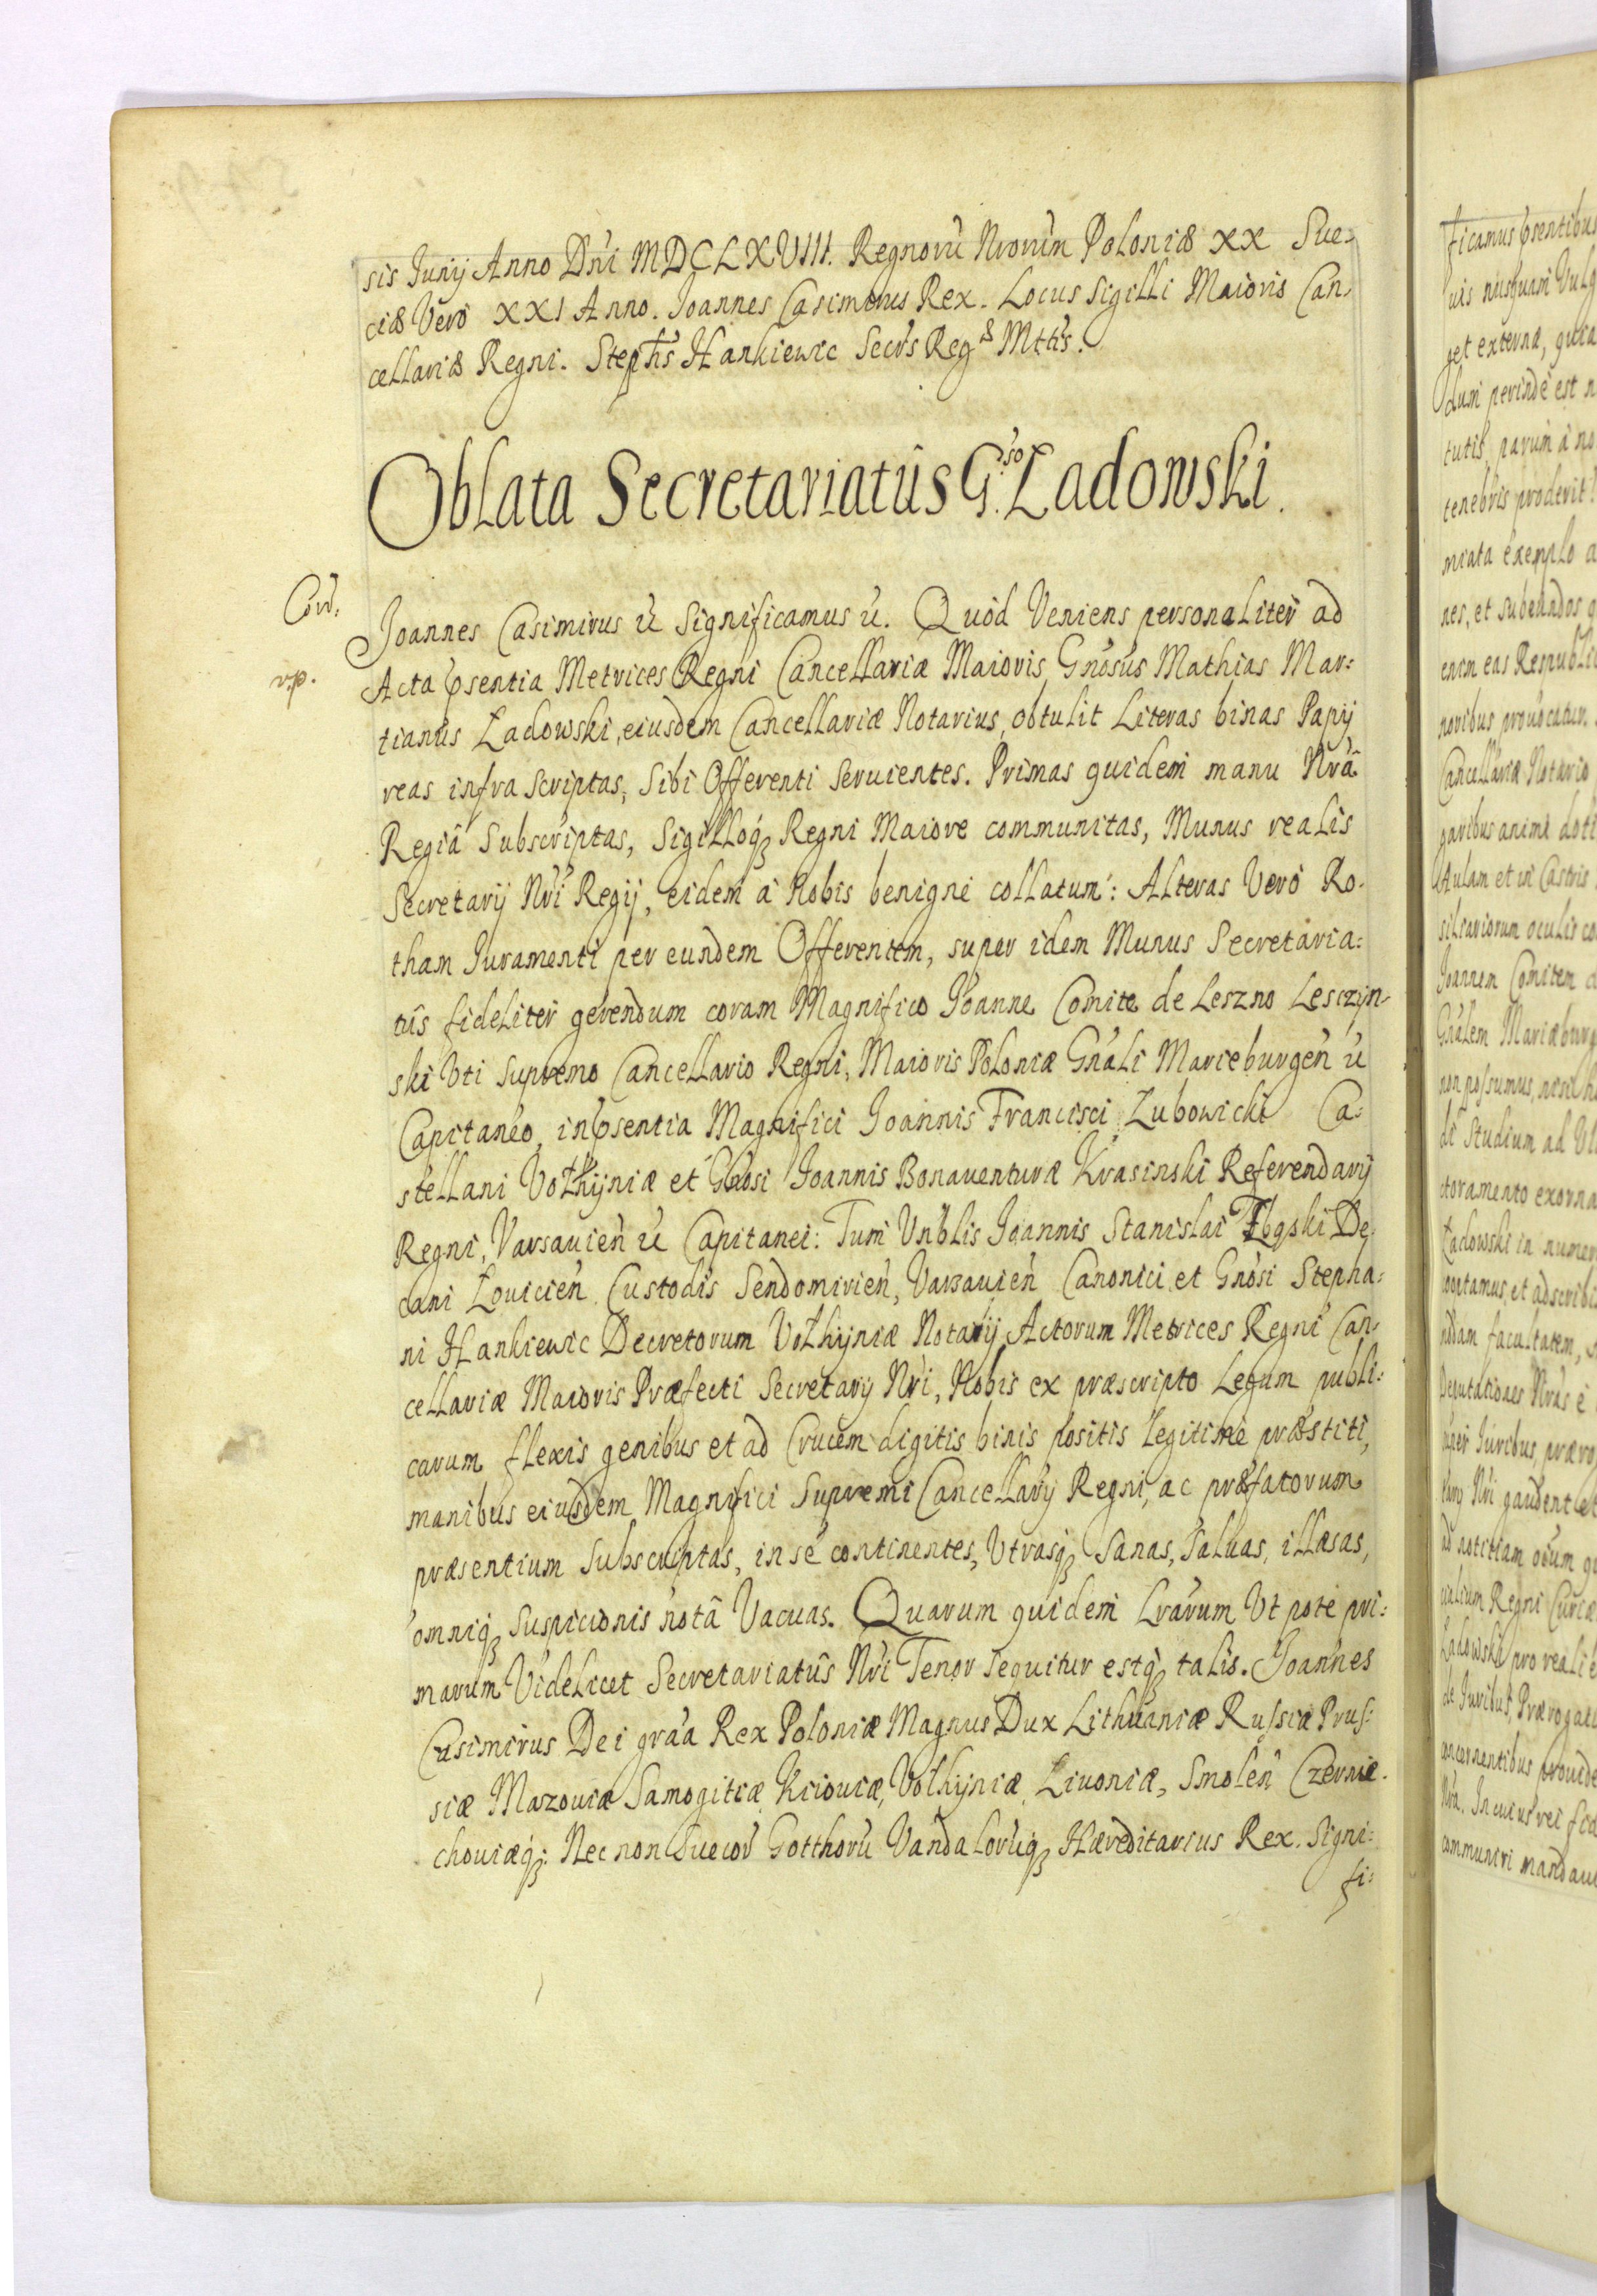 sis Junij Anno Dni MDCLXVIII. Regnorū Nrorūm Poloniæ XX Sue-
ciæ Vero XXI Anno. Joannes Casimirus Rex. Locus Sigilli Maioris Can-
cellariæ Regni. Stephs Hankiewic Secrs Regæ Mttis.
Oblata Secretariatûs G.so Ładowski.
Corr.
Joannes Casimirus &c Significamus &c. Quòd Veniens personaliter ad
r.p.
Acta psentia Metrices Regni Cancellariæ Maioris, Gnosus Mathias Mar:
tianus Ładowski, eiusdem Cancellariæ Notarius, obtulit Literas binas Papij
reas infra scriptas, Sibi Offerenti seruientes. Primas quidem manu Nrâ
Regiâ Subscriptas, Sigilloq; Regni Maiore communitas, Munus realis
Secretarij Nri Regij, eidem à Nobis benigne collatum: Alteras Verò Ro-
tham Juramenti per eundem Offerentem, super idem Munus Secretaria:
tûs fideliter gerendum coram Magnifico Joanne Comite de Leszno Lesczyn-
ski Uti Supremo Cancellario Regni, Maioris Poloniæ Gnáli Marieburgen &c
Capitaneo, in psentia Magnifici Joannis Francisci Lubowicki Ca:
stellani Vołhyniæ et Gnosi Joannis Bonauenturæ Krasinski Referendarij
Regni, Varsauien &c Capitanei: Tum Vnblis Joannis Stanislai Zbąski De-
cani Łouicien Custodis Sendomirien, Varsauien Canonici et Gnosi Stepha:
ni Hankiewic Decretorum Vołhyniæ Notarij Actorum Metrices Regni Can-
cellariæ Maioris Præfecti Secretarij Nri, Nobis ex præscripto Legum publi:
carum flexis genibus et ad Crucem digitis binis positis legitimè præstiti,
manibus eiusdem Magnifici Supremi Cancellarij Regni, ac præfatorum
præsentium Subscriptas, in se continentes, Utrasq; Sanas, Saluas, illæsas,
omniq; suspicionis notâ Vacuas. Quarum quidem Lrarum Ut pote pri:
marum Videlicet Secretariatûs Nri Tenor sequitur estq; talis. Joannes
Casimirus Dei graa Rex Poloniæ Magnus Dux Lithuaniæ Russiæ Prus:
siæ Mazouiæ Samogitiæ, Kiiouiæ, Volhyniæ, Liuoniæ, Smolen Czernie-
chouiæq;: Nec non Suecor Gotthorū Vandalorūq; Hæreditarius Rex. Signi:
fi: